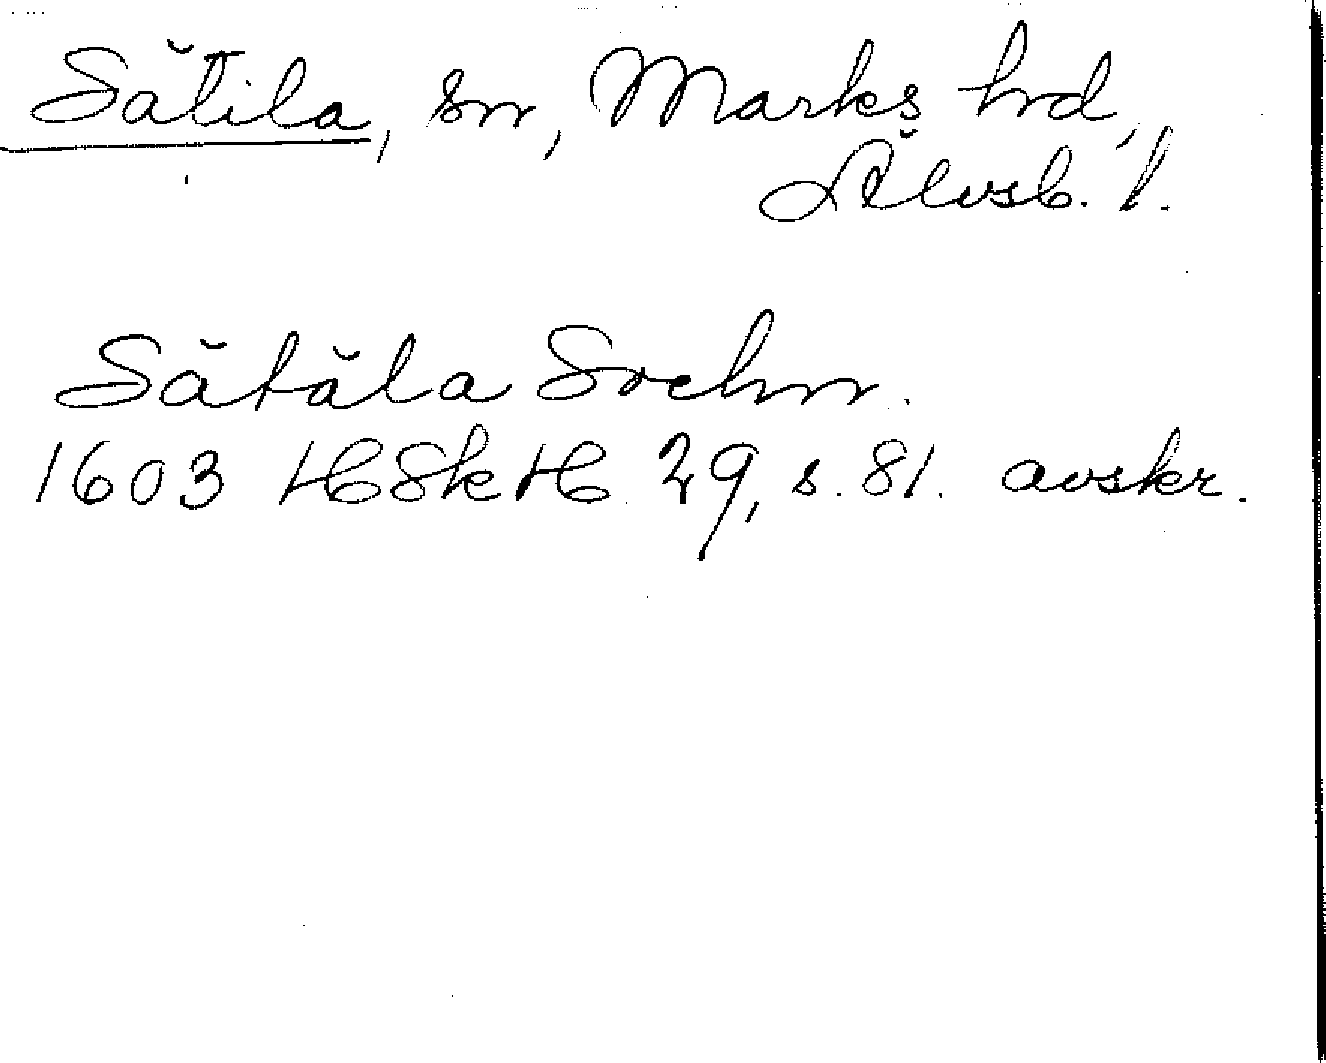 Sätila, sn, Marks hd,
Älvsb. l.
Sätäla Sochn.
1603 HSkH 29, s. 81. avskr.